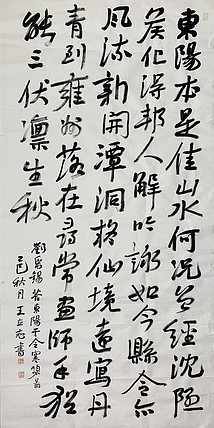 東陽本是佳山水何況曾經沈隱
侯化得邦人解吟詠如今縣令亦
風流新開潭洞仙境遠寫丹
青到雍州落在尋常畫師手猶
能三伏凜生秋
劉禹錫答東陽于令寒碧圖
秋月王立志書